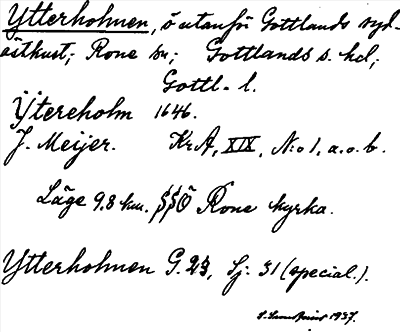 Ytterholmen, ö utanför Gottlands syd-
östkust; Rone sn; Gottlands s. hd;
Gottl. l.
Ÿtereholm 1646.
J. Meijer. KrA, XIX, N:o 1, a.o.b.
Läge 9.8 km. SSÖ Rone kyrka.
Ytterholmen G. 23, Sj: 31 (special.).
1937.